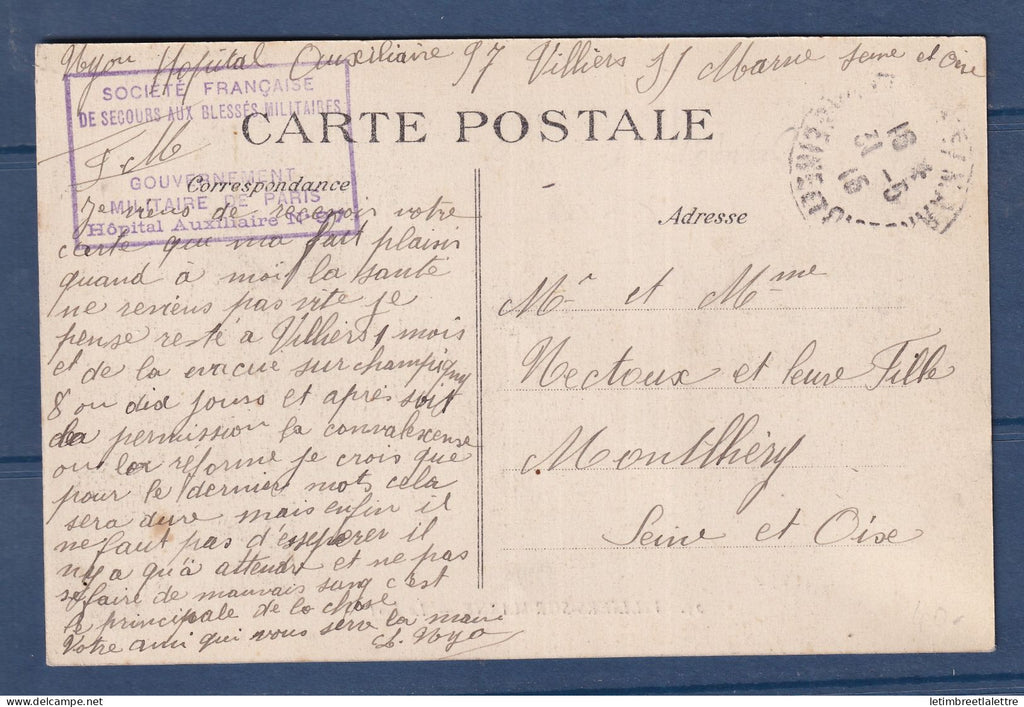 Nyon Hôpital Auxiliaire 97 Villiers s/ Marne Seine et Oise
SOCIÉTÉ FRANÇAISE
DE SECOURS AUX BLESSÉS MILITAIRES
F.M
GOUVERNEMENT
MILITAIRE DE PARIS
Hôpital Auxiliaire N° 97
CARTE POSTALE
Correspondance
Je viens de recevoir votre
carte qui ma fait plaisir
quand à moi la santé
ne reviens pas vite je
pense resté a Villiers 1 mois
et de la evacué sur champigny
8 ou dix jours et après soit
la permission la convalexense
ou la réforme je crois que
pour le dernier mots cela
sera dure mais enfin il
ne faut pas d'ésspérer il
n'y a qu'à attendre et ne pas
se faire de mauvais sang c'est
le principale de la chose
Votre ami qui vous serre la main
Adresse
16 * -5
31 16
Mr et Mme
Nectoux et leure Fille
Montlhéry
Seine et Oise
www.delcampe.net
letimbreetlalettre